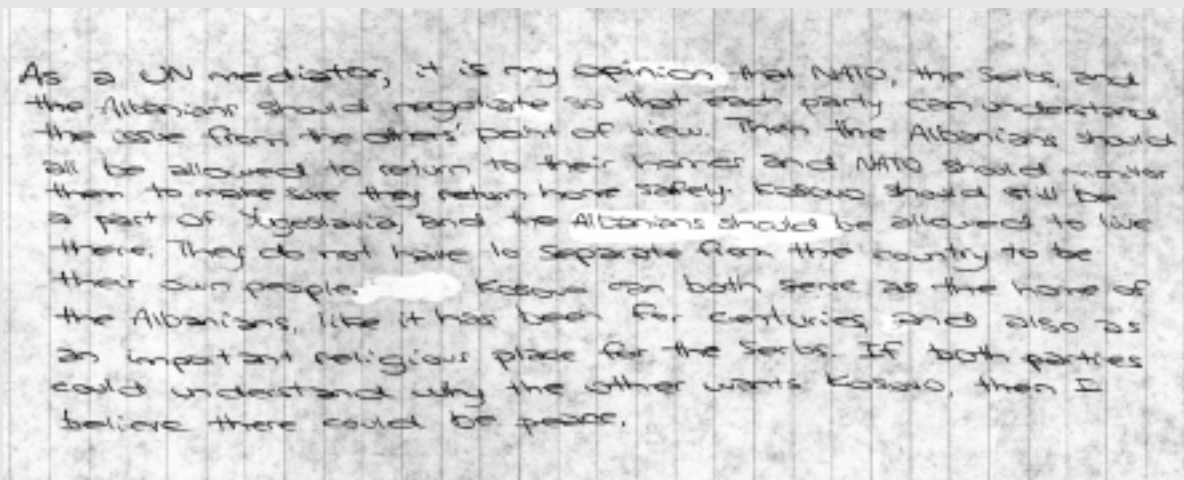 As a UN mediator, it is my opinion that NATO, the Serbs, and
the Albanians should negotiate so that each party can understand
the issue from the others' point of view. Then the Albanians should
all be allowed to return to their homes and NATO should monitor
them to make sure they return home safely. Kosovo should still be
a part of Yugoslavia, and the Albanians should be allowed to live
there. They do not have to separate from the country to be
their own people. Kosovo can both serve as the home of
the Albanians, like it has been for centuries, and also as
an important religious place for the Serbs. If both parties
could understand why the other wants Kosovo, then I
believe there could be peace.